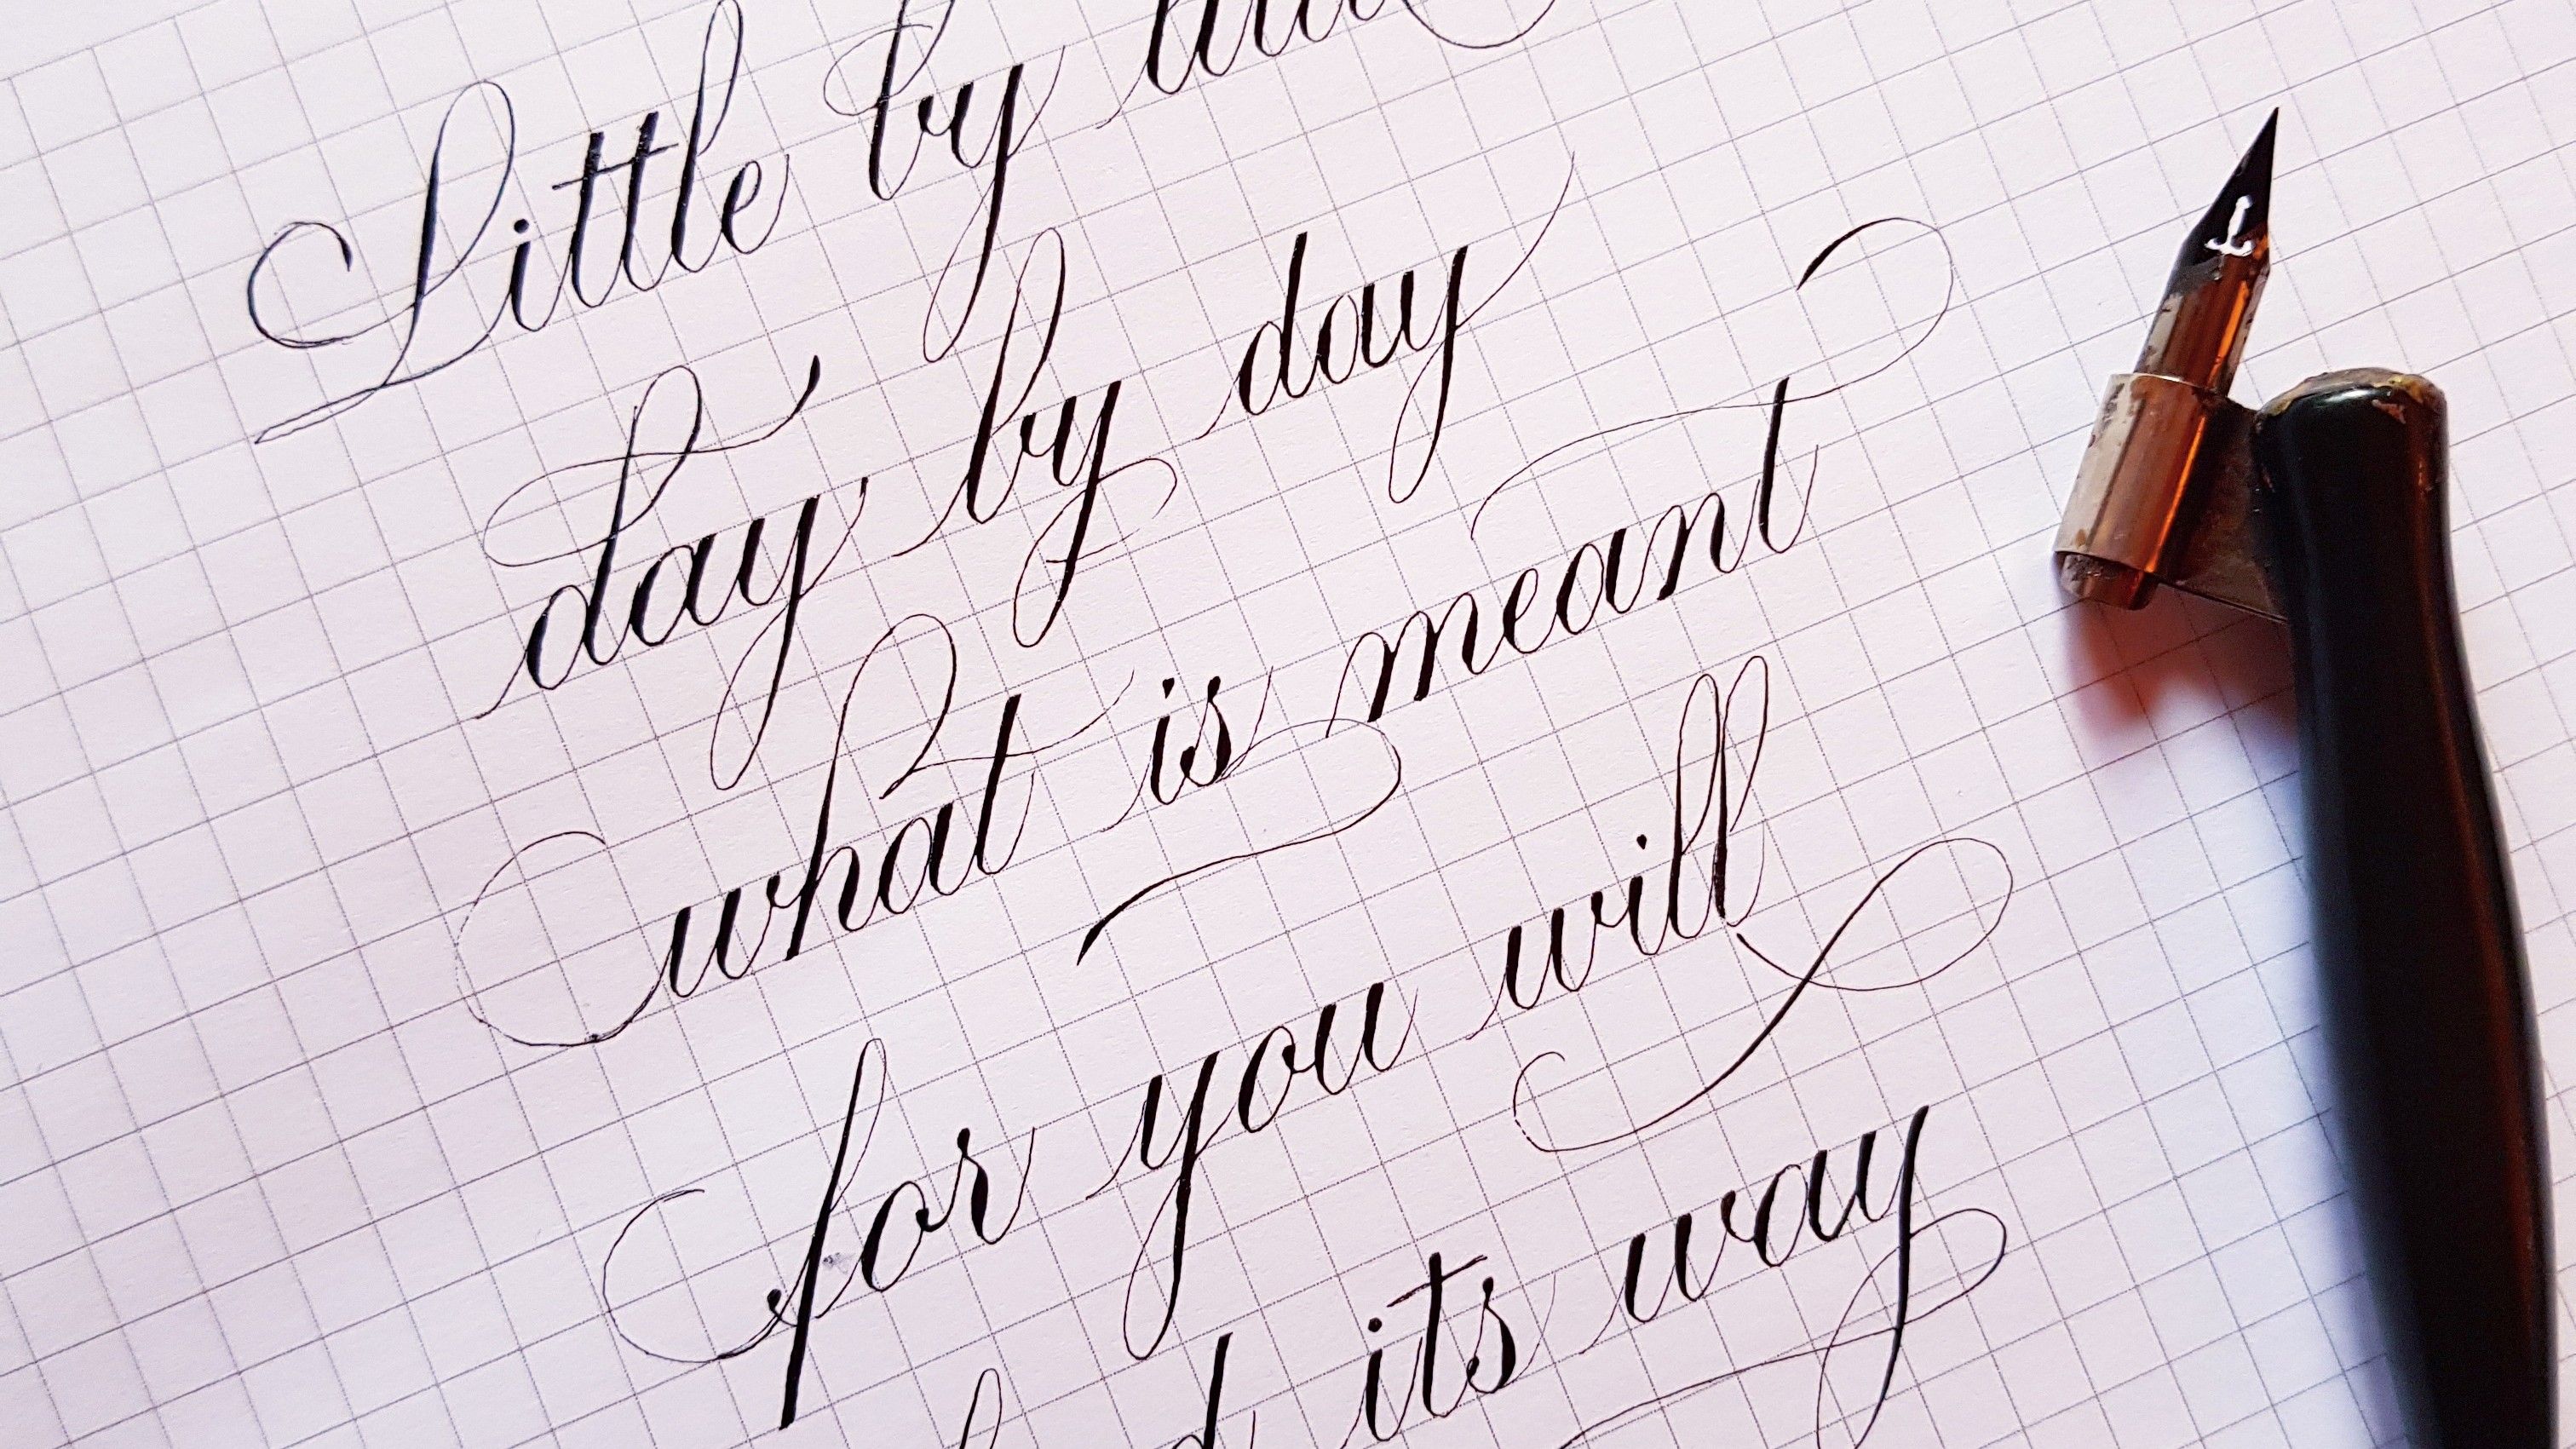 Little by
day by day
what is meant
for you will
its way